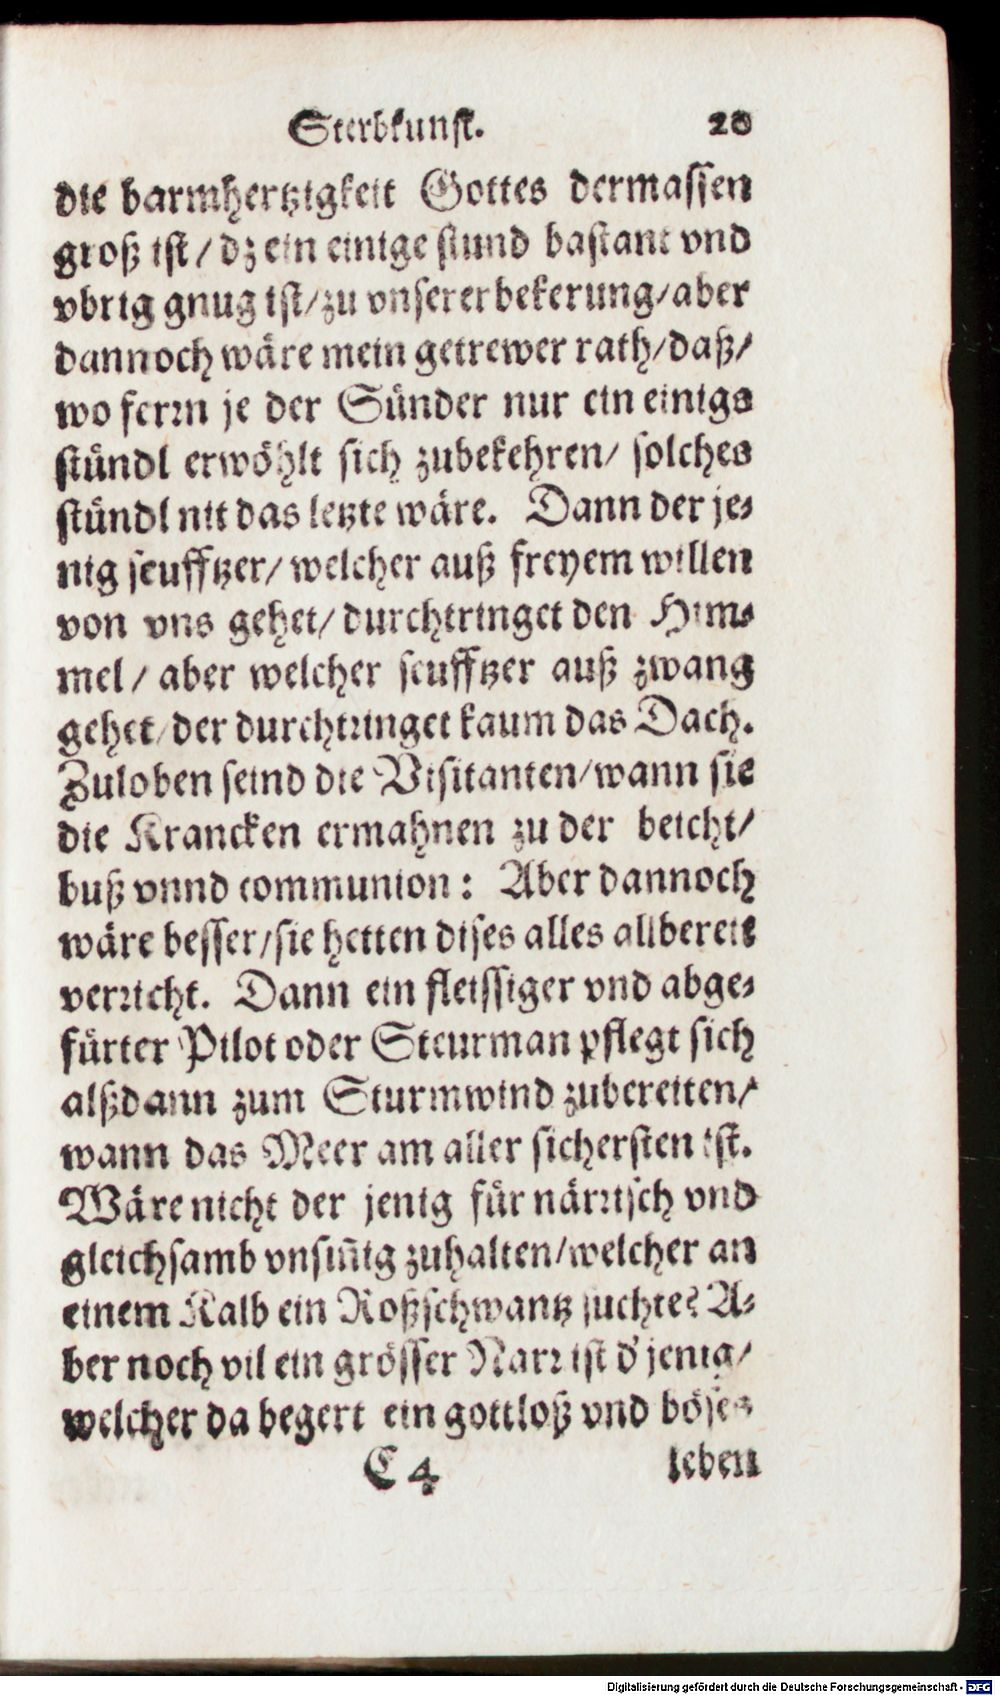 Sterbkunst. 20
die barmhertzigkeit Gottes dermassen
groß ist / dz ein einige stund bastant vnd
vbrig gnug ist / zu vnserer bekerung / aber
dannoch wäre mein getrewer rath / daß /
wo ferrn je der Sünder nur ein einigs
stündl erwöhlt sich zubekehren / solches
stündl nit das letzte wäre. Dann der je-
nig seufftzer / welcher auß freyem willen
von vns gehet / durchtringet den Him-
mel / aber welcher seufftzer auß zwang
gehet / der durchtringet kaum das Dach.
Zuloben seind die Visitanten / wann sie
die Krancken ermahnen zu der beicht /
buß vnnd communion: Aber dannoch
wäre besser / sie hetten dises alles allbereit
verricht. Dann ein fleissiger vnd abge-
fürter Pilot oder Steurman pflegt sich
alßdann zum Sturmwind zubereiten /
wann das Meer am aller sichersten ist.
Wäre nicht der jenig für närrisch vnd
gleichsamb vnsiñig zuhalten / welcher an
einem Kalb ein Roßschwantz suchte? A-
ber noch vil ein grösser Narr ist d' jenig /
welcher da begert ein gottloß vnd böses
C 4 leben
Digitalisierung gefördert durch die Deutsche Forschungsgemeinschaft - DFG